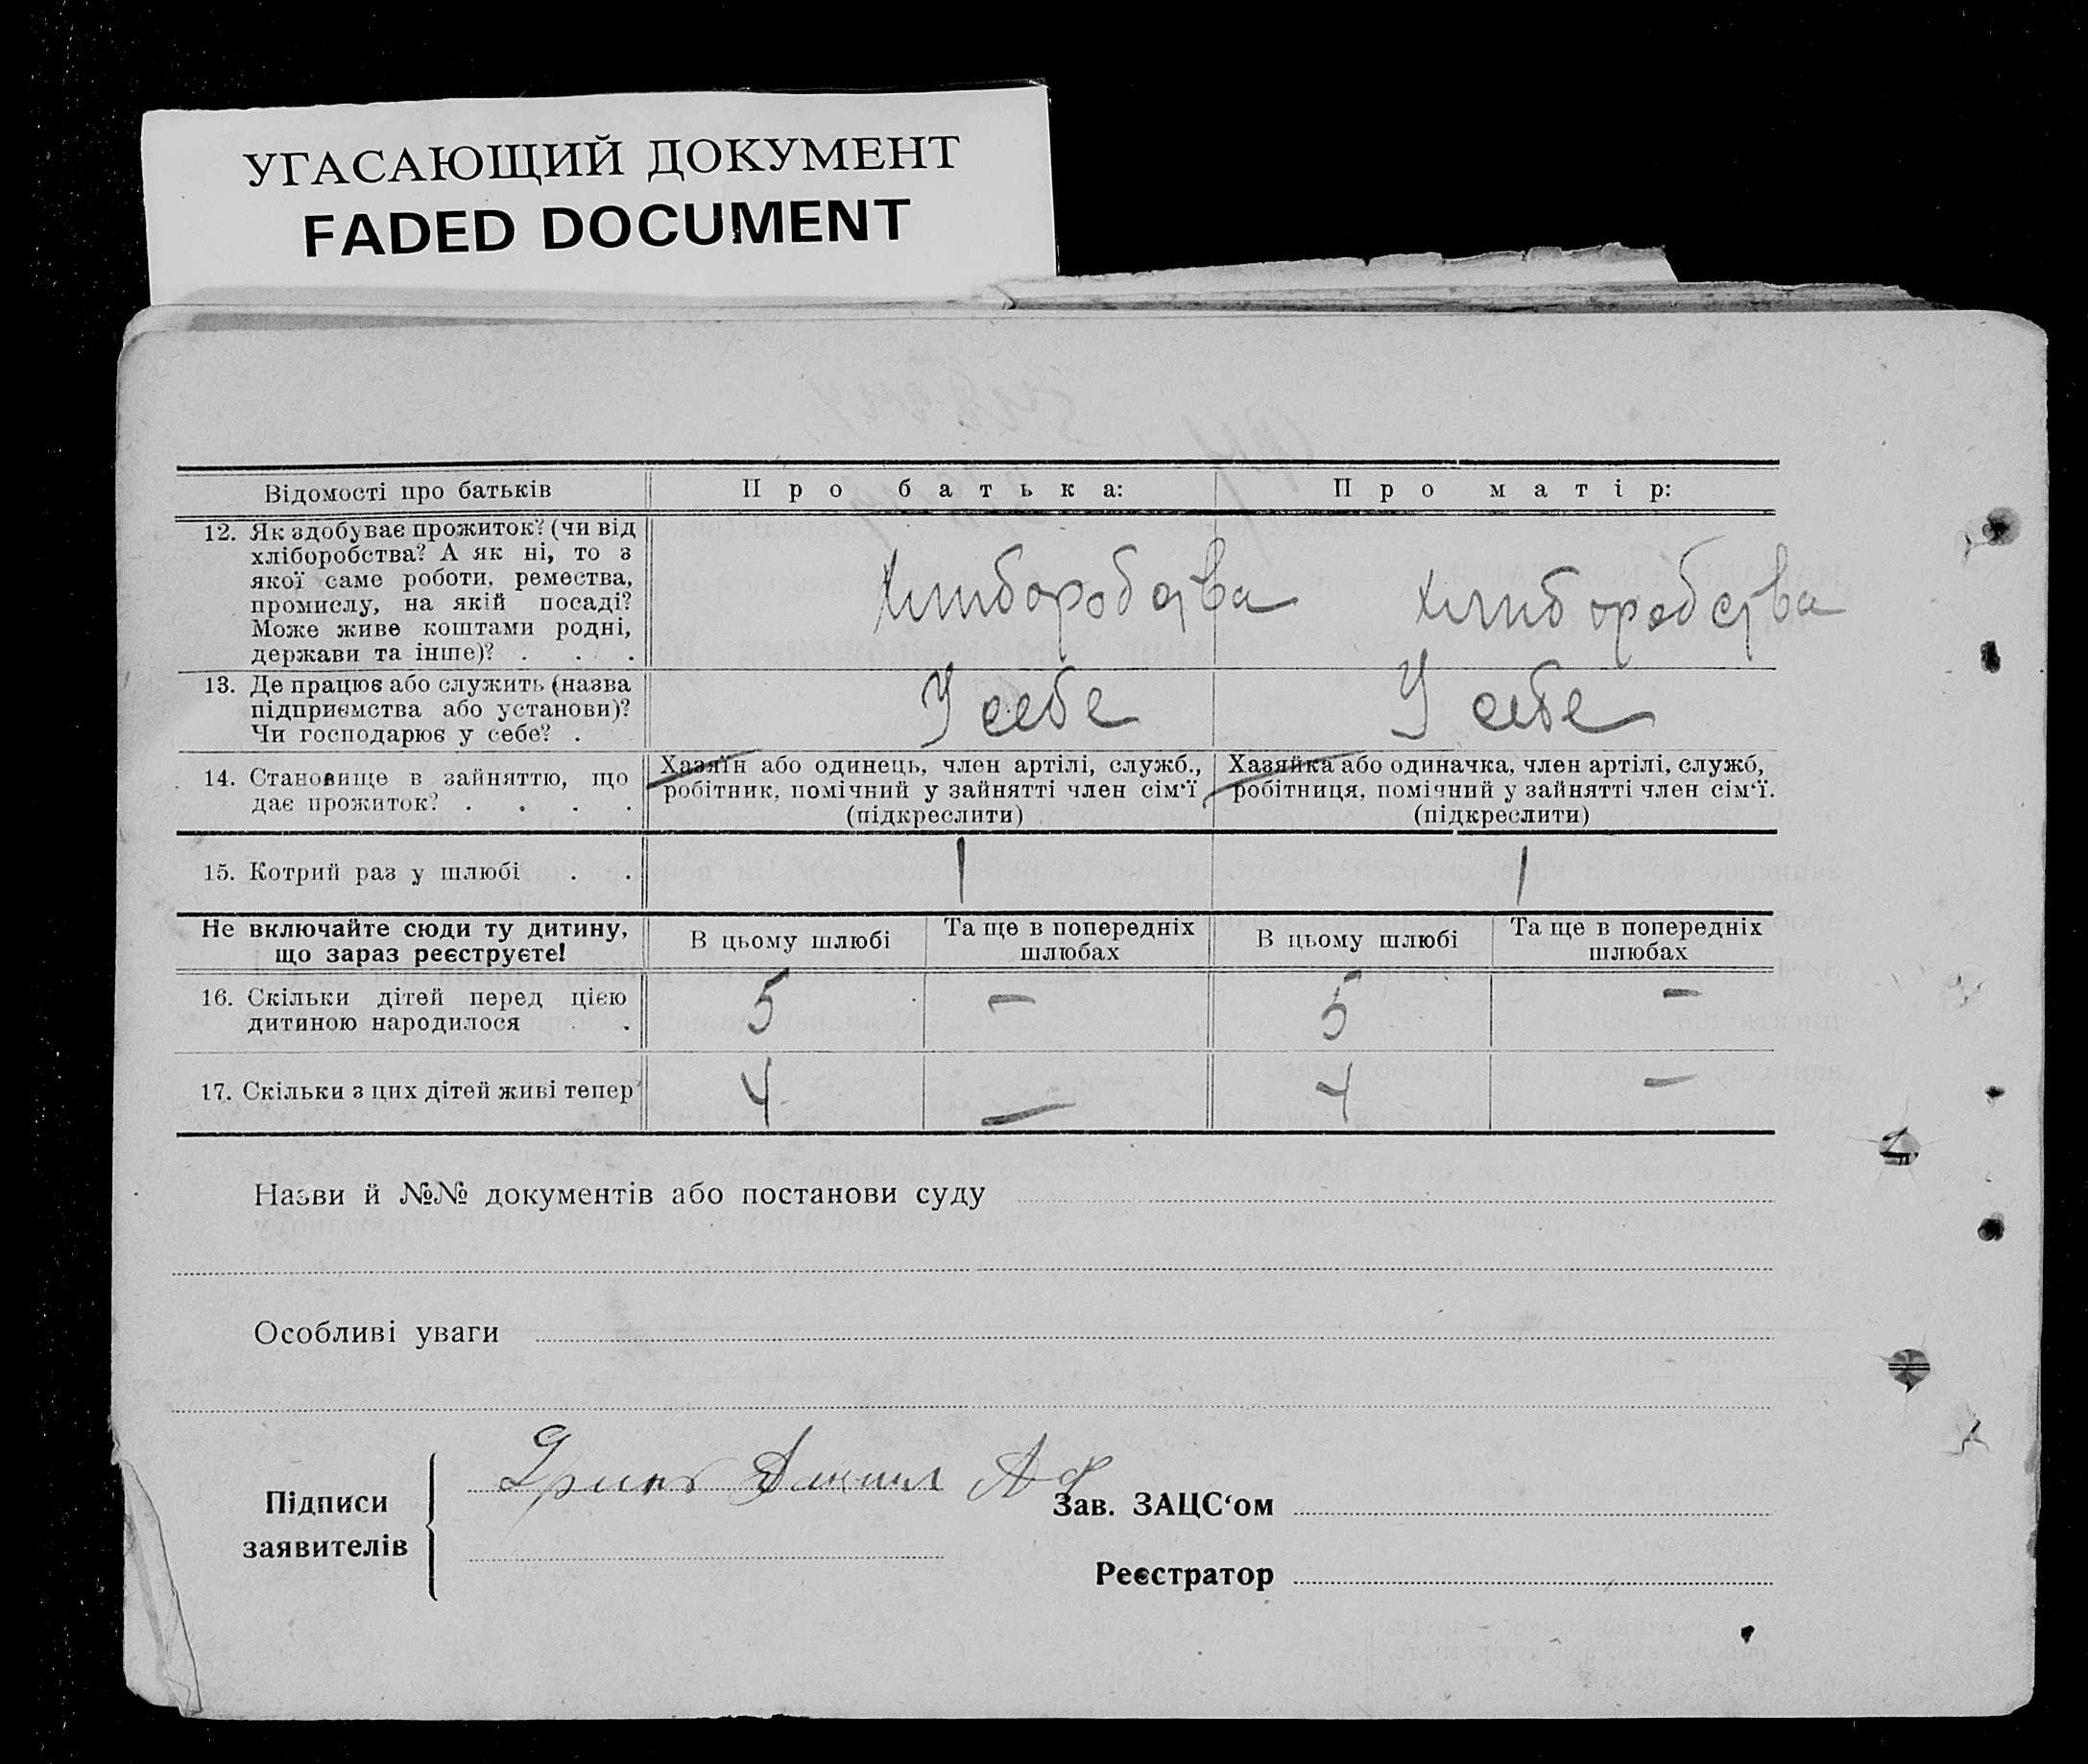 УГАСАЮЩИЙ ДОКУМЕНТ
FADED DOCUMENT
Відомості про батьків
Про батька:
Про матір:
12. Як здобуває прожиток? (чи від
хліборобства? А як ні, то з
якої саме роботи, ремества,
промислу, на якій посаді?
Може живе коштами родні,
держави та інше)? . . .
Хлиборобства
хлиборобства
13. Де працює або служить (назва
підприємства або установи)?
Чи господарює у себе? .
У себе
У себе
14. Становище в зайняттю, що
дає прожиток? . . . .
Хазяїн або одинець, член артілі, служб.,
робітник, помічний у зайнятті член сім'ї
(підкреслити)
Хазяйка або одиначка, член артілі, служб,
робітниця, помічний у зайнятті член сім'ї.
(підкреслити)
15. Котрий раз у шлюбі . .
1
1
Не включайте сюди ту дитину,
що зараз реєструєте!
В цьому шлюбі
Та ще в попередніх
шлюбах
В цьому шлюбі
Та ще в попередніх
шлюбах
16. Скільки дітей перед цією
дитиною народилося . .
5
—
5
—
17. Скільки з цих дітей живі тепер
4
—
4
—
Назви й №№ документів або постанови суду
Особливі уваги
Підписи
заявителів
Данил
Зав. ЗАЦС'ом
Реєстратор